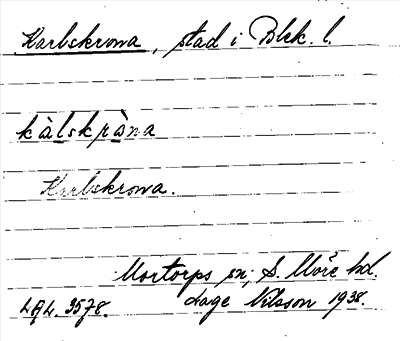 Karlskrona, stad i Blek. l.
kàlskràna
Karlskrona.
Mortorps sn, S. Möre hd.
LAL. 3578. Hage Nilsson 1938.